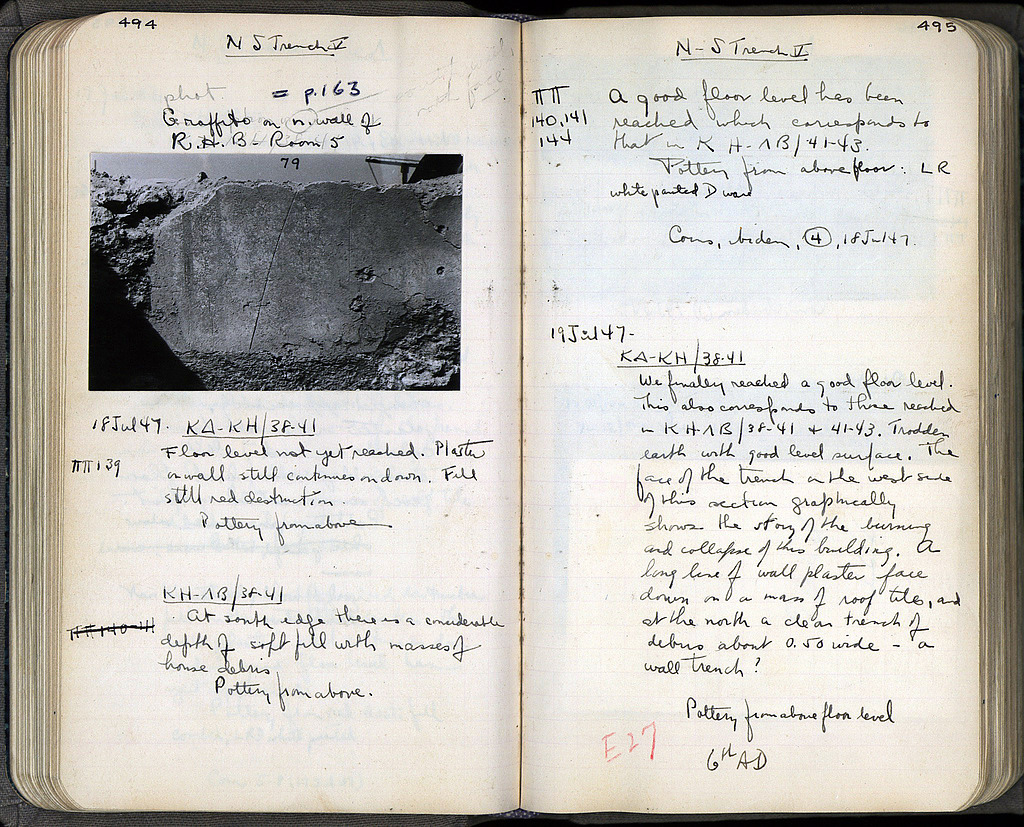 494
N S Trench V
phot.
= p.163
Graffito on n. wall of
R.H.B - Room 5
79
18 Jul 47. KA-KH/38-41
Floor level not yet reached. Plaster
ΠΠ139
on wall still continues on down. Fill
still red destruction.
Pottery from above
KH-ΛB/38-41
At south edge there is a considerable
depth of soft fill with masses of
house debris
Pottery from above.
495
N-S Trench V
ΠΠ
140,141
144
A good floor level has been
reached which corresponds to
that in KH-ΛB/41-43.
Pottery from above floor: LR
white painted D ware
Coins, biden, 4, 18 Jul 47.
19 Jul 47-
KA-KH/38-41
We finally reached a good floor level.
This also corresponds to those reached
in KH-ΛB/38-41 + 41-43. Trodden
earth with good level surface. The
face of the trench on the west side
of this section graphically
shows the story of the burning
and collapse of this building. A
long line of wall plaster face
down on a mass of roof tiles, and
at the north a clear trench of
debris about 0.50 wide - a
wall trench?
Pottery from above floor level
E27
6th AD